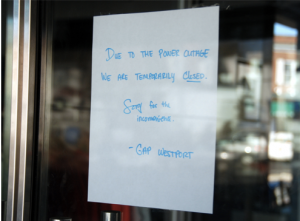 DUE TO THE POWER OUTAGE
WE ARE TEMPORARILY CLOSED.
Sorry for the
inconvenience.
- GAP WESTPORT